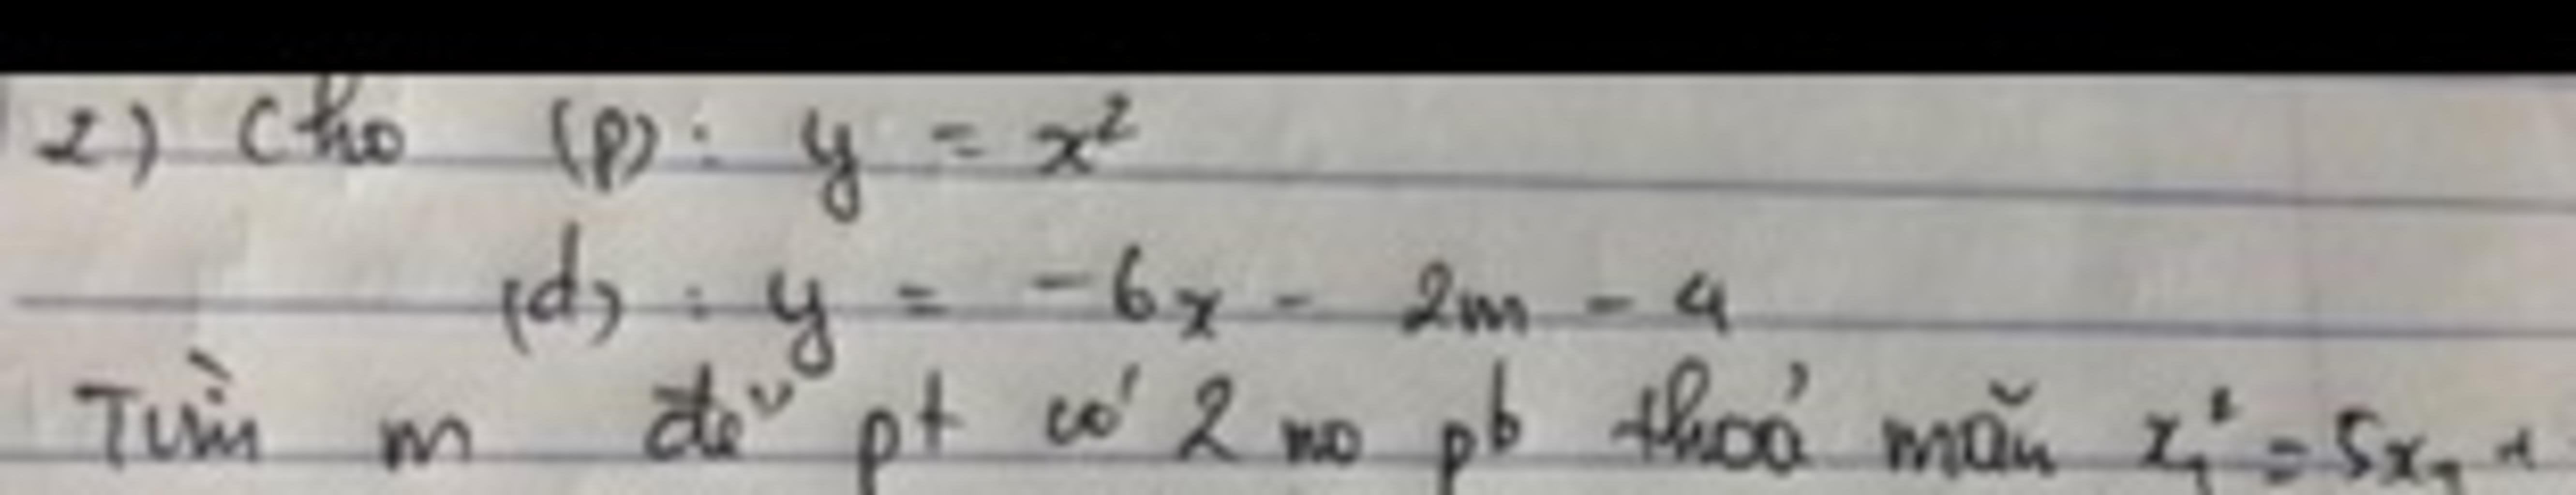 2) Cho (P): y = x²
(d): y = -6x - 2m - 4
Tìm m để pt có 2 no pb thoả mãn x₁² = 5x₁ +